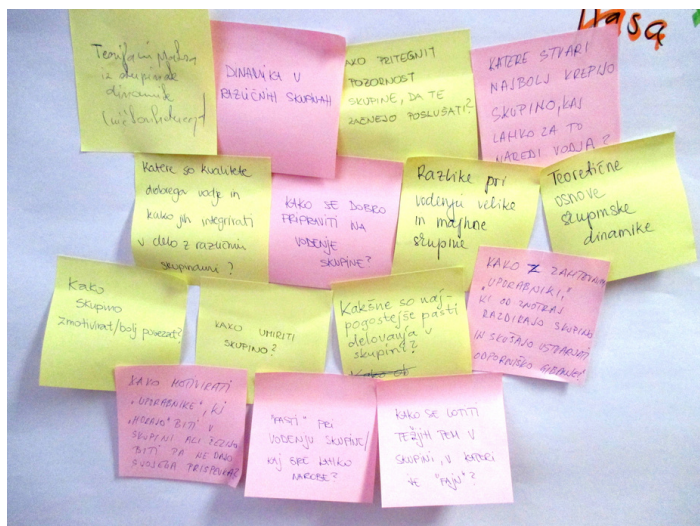 vasa
iz skupinske
dinamike
DINAMIKA V
RAZLIČNIH SKUPINAH
KAKO PRITEGNIT
POZORNOST
SKUPINE, DA TE
ZAČNEJO POSLUŠATI?
KATERE STVARI
NAJBOLJ KREPIJO
SKUPINO, KAJ
LAHKO ZA TO
NAREDI VODJA?
Katere so kvalitete
dobrega vodje in
kako jih integrirati
v delo z različnimi
skupinami?
KAKO SE DOBRO
PRIPRAVITI NA
VODENJE
SKUPINE?
Razlike pri
vodenju velike
in majhne
skupine
Teoretične
osnove
skupinske
dinamike
Kako
skupino
zmotivirat/bolj povezat?
KAKO UMIRITI
SKUPINO?
Kakšne so naj-
pogostejše pasti
delovanja v
skupini?
KAKO Z ZAHTEVNIMI
"UPORABNIKI,"
KI OD ZNOTRAJ
RAZDIRAJO SKUPINO
IN SKUŠAJO USTVARJATI
ODPORNIŠKO GIBANJE?
KAKO MOTIVIRATI
"UPORABNIKE", KI
"MORAJO" BITI V
SKUPINI ALI ŽELIJO
BITI PA NE DAJO
SVOJEGA PRISPEVKA?
"PASTI" PRI
VODENJU SKUPINE/
KAJ GRE LAHKO
NAROBE?
KAKO SE LOTITI
TEŽJIH TEM V
SKUPINI, V KATERI
JE "FAJN"?